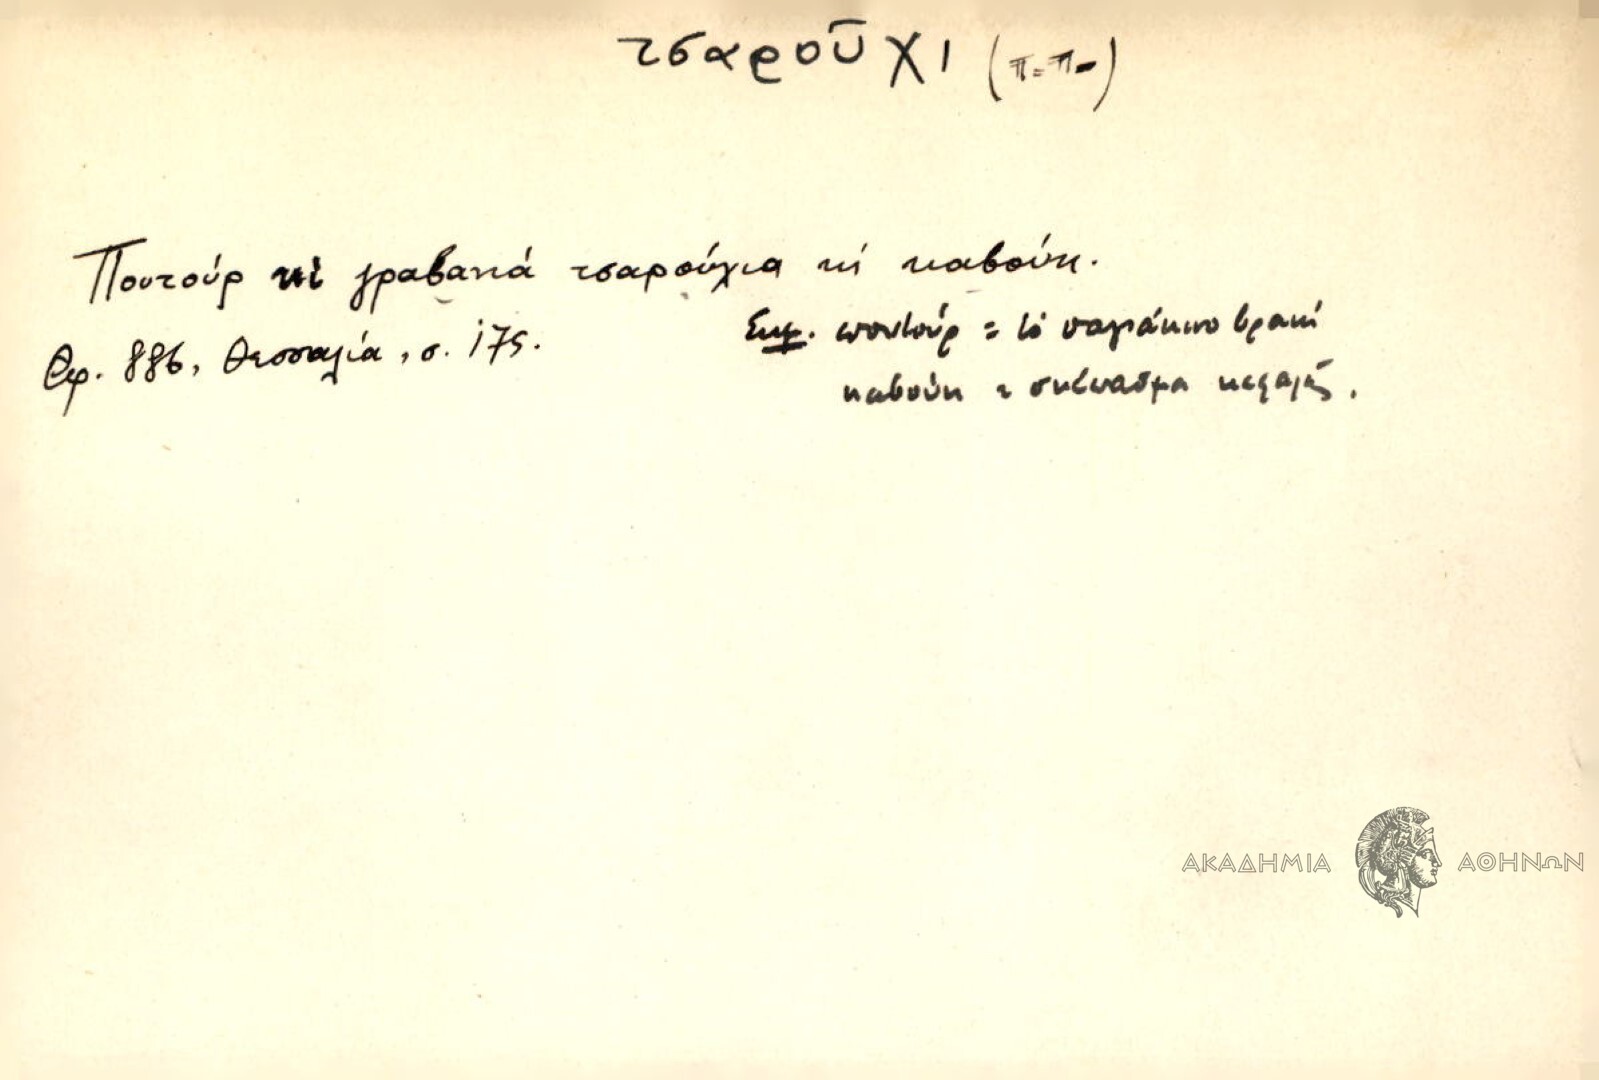 τσαροῦχι (π.π.)
Πουτούρ κὶ γραβανιά τσαρούχια κί καβούκι.
Θρ. 886, Θεσσαλία, σ. 175.
Σημ. πουτούρ = τὸ παλιάκινο βρακί
καβούκι = σκέπασμα κεφαλῆς.
ΑΚΑΔΗΜΙΑ ΑΘΗΝΩΝ